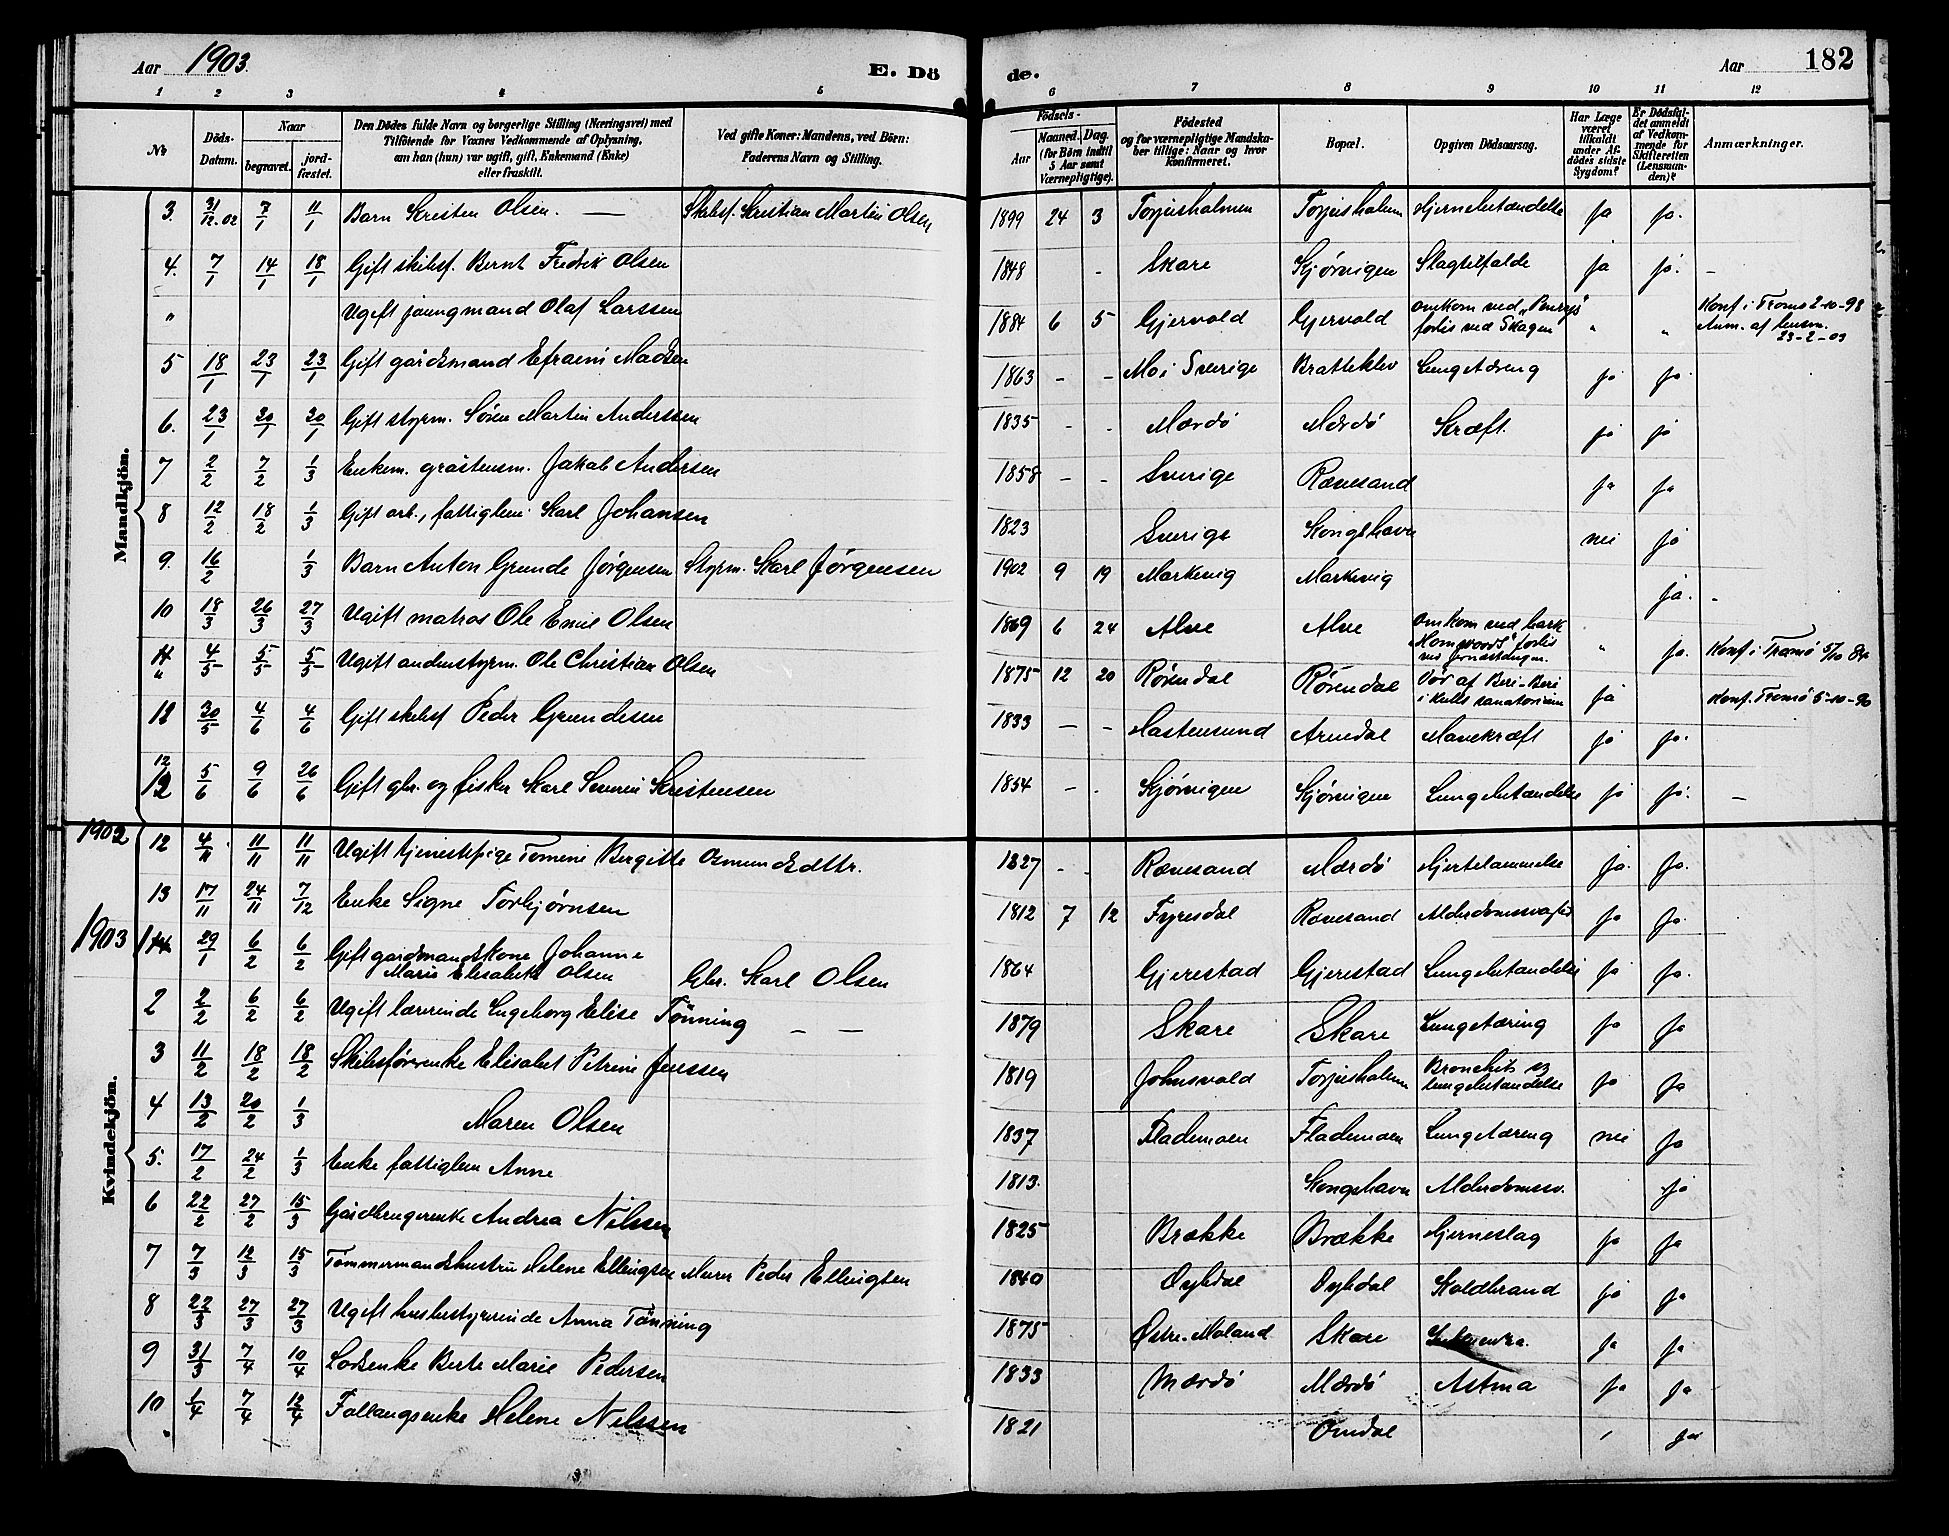 Aar 1903. E. Dö de. Aar 182
1 2 3 4 5 6 7 8 9 10 11 12
No Döds-Datum. Naar begravet. jordfæstet. Den Dödes fulde Navn og borgerlige Stilling (Næringsvei) med Tilföiende for Voxnes Vedkommende af Oplysning, om han (hun) var ugift, gift, Enkemand (Enke) eller fraskilt. Ved gifte Koner: Mandens, ved Börn: Faderens Navn og Stilling. Födsels- Aar Maaned. Dag. (for Börn indtil 5 Aar samt Værnepligtige). Födested og for værnepligtige Mandskaber tillige: Naar og hvor konfirmeret. Bopæl. Opgiven Dödsaarsag. Har Læge været tilkaldt under Afdödes sidste Sygdom? Er Dödsfaldet anmeldt af Vedkommende for Skifteretten (Lensmanden)? Anmærkninger.
Mandkjön.
3. 31/12.02 7/1 11/1 Barn Kristen Olsen. — Skibsf. Kristian Martin Olsen 1899 24 3 Torjusholmen Torjusholmen Hjernebetændelse ja ja.
4. 7/1 14/1 18/1 Gift skibsf. Bernt Fredrik Olsen 1848 - Skare Kjørvigen Slagtilfælde ja ja. -
" Ugift jungmand Olaf Larssen 1884 6 5 Gjervold Gjervold omkom ved forlis ved Skagen " " Konf i Tromø 2-10-98 Anm. af lensm. 23-2-03
5 18/1 23/1 23/1 Gift gårdsmand Efraim Madsen 1863 - - Mo i Sverige Bratteklev Lungetæring ja ja
6. 23/1 30/1 30/1 Gift styrm. Søren Martin Anderssen 1835 - - Mærdø Mærdø Kræft. ja ja
7 2/2 7/2 1/3 Enkem. gråstensm. Jakob Andersen 1858 - - Sverige Rævesand ja ja
8 12/2 18/2 1/3 Gift arb., fattiglem Karl Johansen 1823 Sverige Kongshavn nei ja
9. 16/2 1/3 Barn Anton Grunde Jørgensen Styrm. Karl Jørgensen 1902 9 19 Markevig Markevig ja. -
10 18/3 26/3 27/3 Ugift matros Ole Emil Olsen 1869 6 24 Alve Alve omkom ved bark forlis ved " ja. Konf. i Tromø 5/10 84
11 4/5 5/5 5/5 Ugift andenstyrm. Ole Christian Olsen 1875 12 20 Rørendal Rørendal Død af Beri-Beri i Hulls sanatorium ja Konf. Tromø 5-10-90
12 30/5 4/6 4/6 Gift skibsf Peder Grundesen 1833 - - Hastensund Arendal Mavekræft ja ja. -
12 5/6 9/6 26/6 Gift gbr. og fisker Karl Severin Kristensen 1854 - - Kjørvigen Kjørvigen Lungebetændelse ja ja. -
Kvindekjön.
1902 12 4/11 11/11 11/11 Ugift tjenestepige Tomine Bergitte Osmundsdttr. 1827 - - Rævesand Mærdø Hjertelammelse ja ja.
13 17/11 24/11 7/12 Enke Signe Torbjørnsen 1812 7 12 Fyresdal Rævesand ja ja.
1903 1 29/1 6/2 6/2 Gift gårdmandskone Johanne Marie Elisabeth Olsen Gbr. Karl Olsen 1864 Gjerestad Gjerestad Lungebetændelse ja ja.
2 2/2 6/2 6/2 Ugift lærerinde Ingeborg Elise Tönning — — 1879 Skare Skare Lungetæring ja ja
3 11/2 18/2 18/2 Skibsførerenke Elisabet Petrine Jenssen 1819 Johnsvold Torjusholmen Bronchit og lungebetændelse ja ja
4 13/2 20/2 1/3 Maren Olsen 1837 Flademoen Flademoen Lungetæring nei ja
5. 17/2 24/2 1/3 Enke fattiglem Anne 1813. Kongshavn Alderdomssv. ja
6 22/2 27/2 15/3 Gårdbrugerenke Andrea Nilssen 1825 Brække Brække Hjerneslag ja ja
7 7/3 12/3 15/3 Tømmermandshustru Helene Ellingsen Murer Peder Ellingsen 1840 Øybdal Øybdal Koldbrand ja ja
8 22/3 27/3 27/3 Ugift husbestyrerinde Anna Tönning 1875 Østre-Moland Skare Influenza. ja ja
9 31/3 7/4 10/4 Lodsenke Berte Marie Pedersen 1833 Mærdø Mærdø Astma ja ja
10 1/4 7/4 12/4 Helene Nilssen 1821 Omdal ' ja